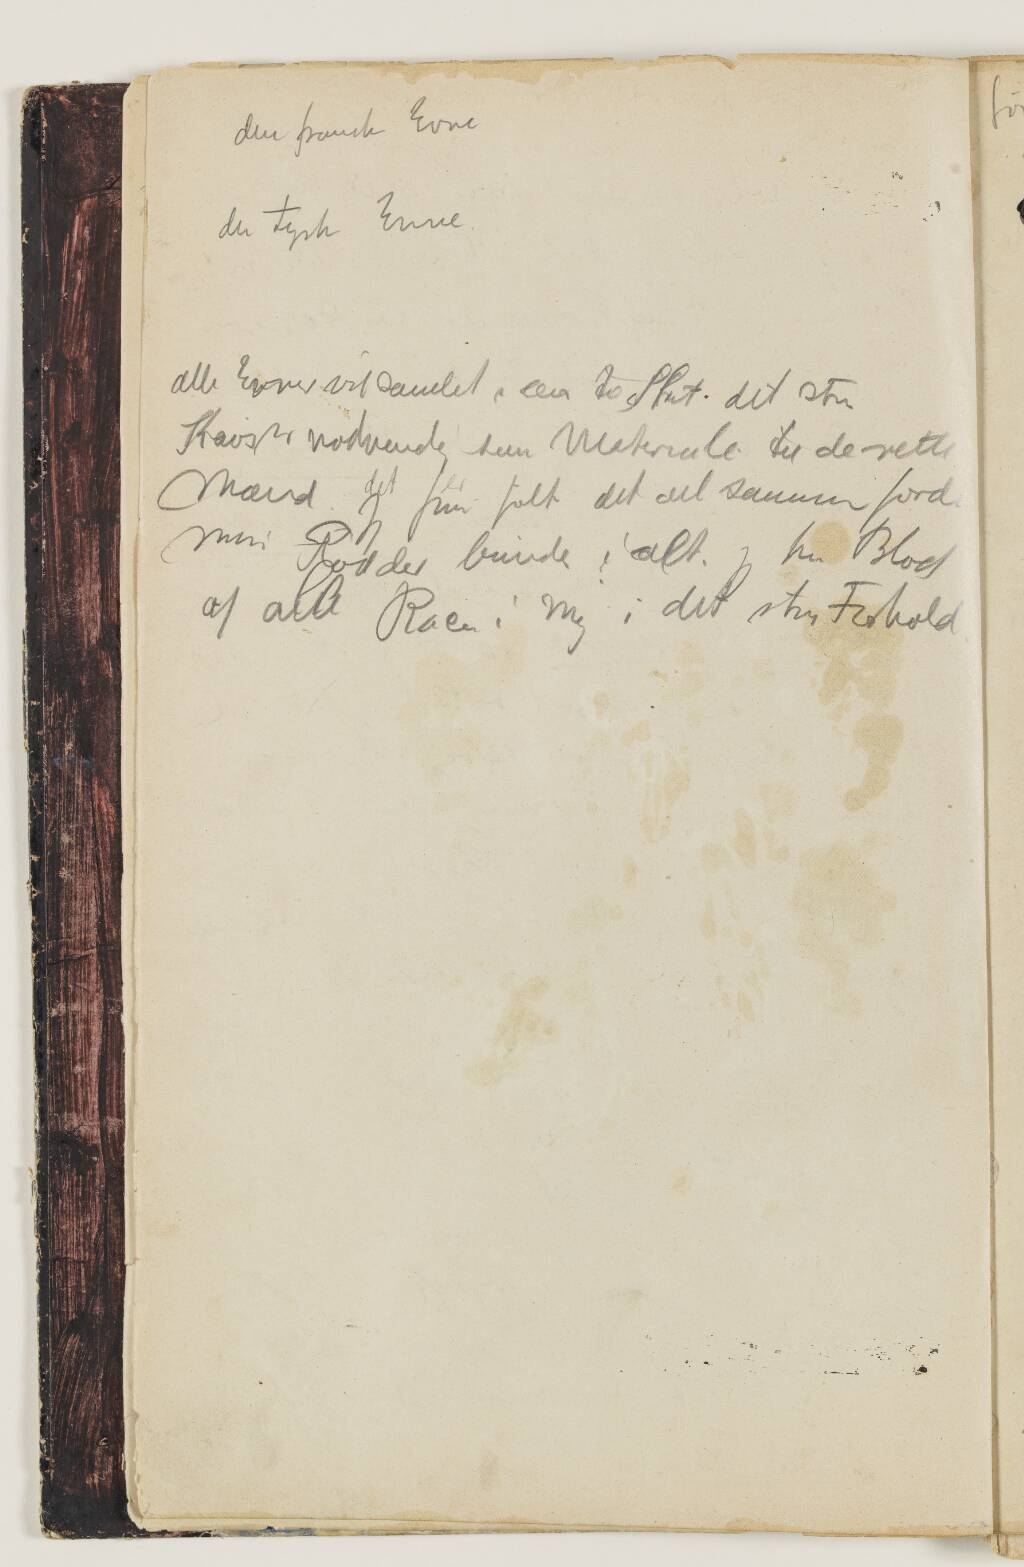 den fransk Evne
den tysk Evne.
alle Evner vil samlet i een til Slut. det stor
nødvendig som Materiale til de rette
Mænd. Jeg har følt det alt sammen fordi
min Rødder bunder i alt. og har Blod
af alle Racer i mig i det store Forhold
fö